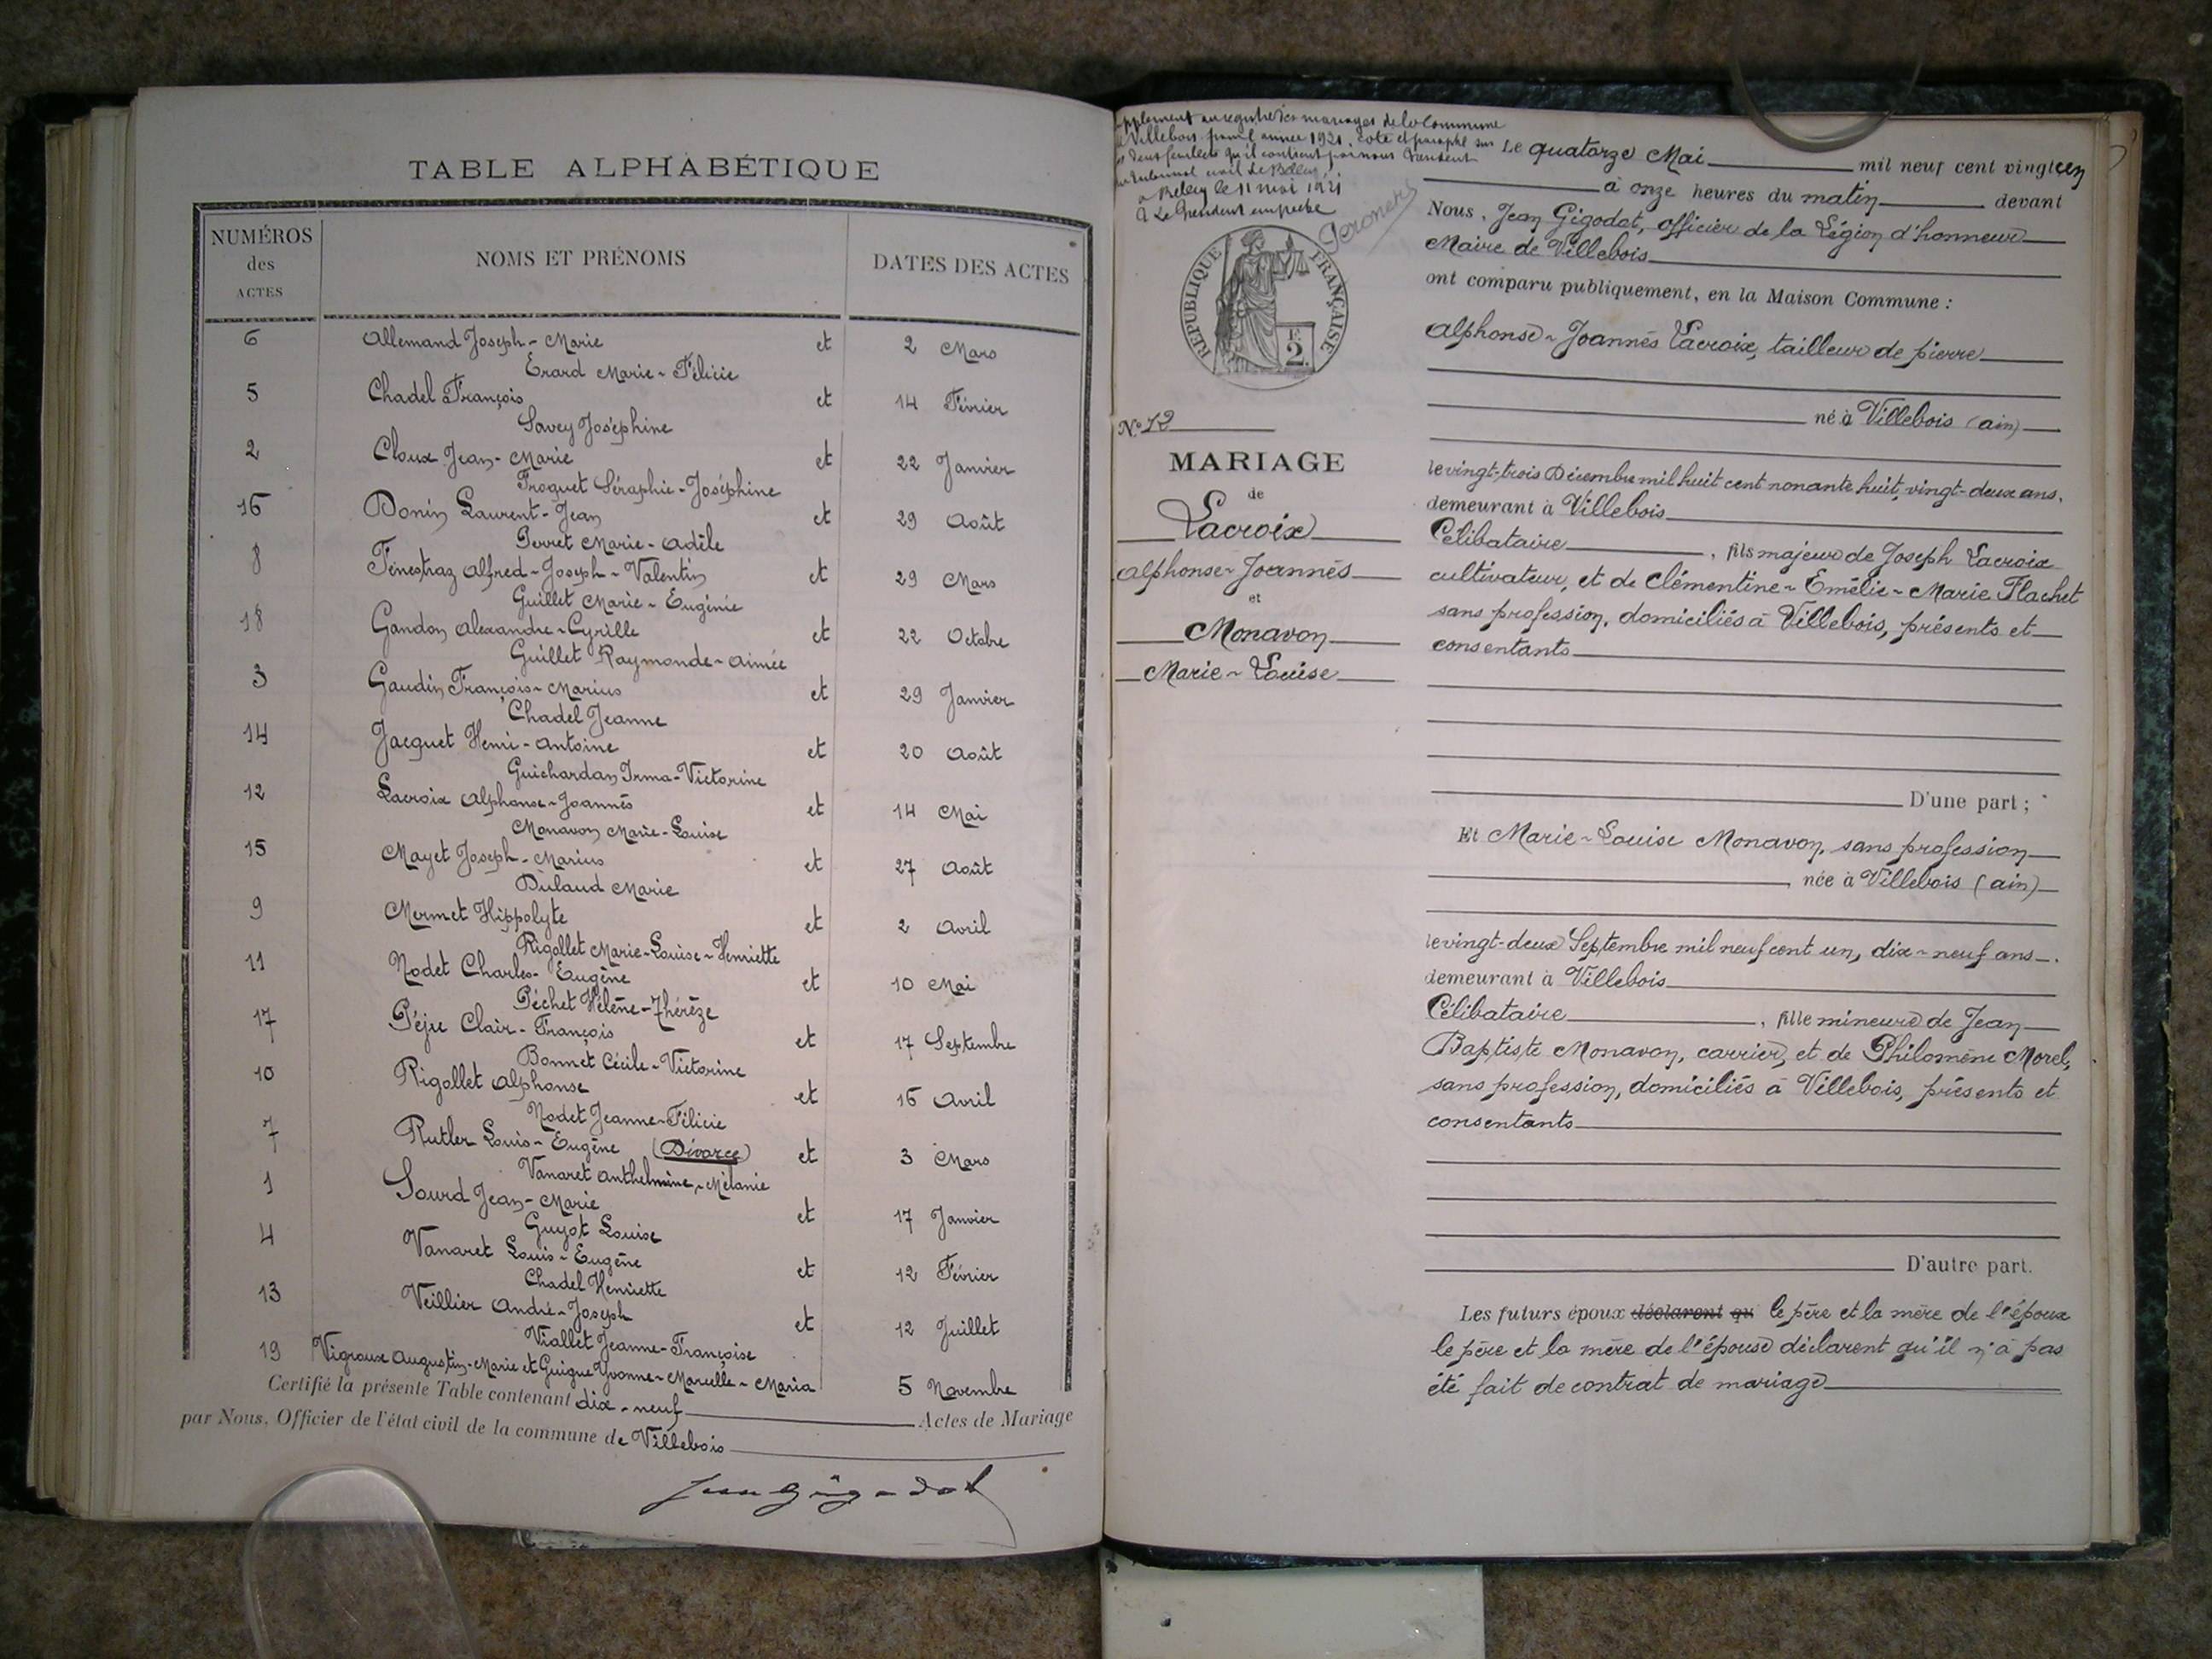 TABLE ALPHABÉTIQUE
NUMÉROS des ACTES
NOMS ET PRÉNOMS
DATES DES ACTES
6 Allemand Joseph-Marie et 2 Mars
Erard Marie-Félicie
5 Chadel François et 14 Février
Savey Joséphine
2 Cloux Jean-Marie et 22 Janvier
Froquet Séraphie-Joséphine
16 Donin Laurent-Jean et 29 Août
Perret Marie-Adèle
8 Fenestraz Alfred-Joseph-Valentin et 29 Mars
Guillet Marie-Eugénie
18 Gandon Alexandre-Cyrille et 22 Octobre
Guillet Raymonde-Aimée
3 Gaudin François-Marius et 29 Janvier
Chadel Jeanne
14 Jacquet Henri-Antoine et 20 Août
Guichardan Irma-Victorine
12 Lacroix Alphonse-Joannès et 14 Mai
Monavon Marie-Louise
15 Mayet Joseph-Marius et 27 Août
Dulaud Marie
9 Mermet Hippolyte et 2 Avril
Rigollet Marie-Louise-Henriette
11 Nodet Charles-Eugène et 10 Mai
Péchet Hélène-Thérèze
17 Péju Clair-François et 17 Septembre
Bonnet Cécile-Victorine
10 Rigollet Alphonse et 16 Avril
Nodet Jeanne-Félicie
7 Rutler Louis-Eugène (Divorce) et 3 Mars
Vanaret Anthelmine-Mélanie
1 Sourd Jean-Marie et 17 Janvier
Guyot Louise
4 Vanaret Louis-Eugène et 12 Février
Chadel Henriette
13 Veillier André-Joseph et 12 Juillet
Viallet Jeanne-Françoise
19 Vigroux Augustin-Marie et Guigue Yvonne-Marcelle-Maria 5 Novembre
Certifié la présente Table contenant dix-neuf Actes de Mariage
par Nous, Officier de l'état civil de la commune de Villebois
Jean Gigodot
pplement au registre des mariages de la Commune
de Villebois pour l'annee 1921, coté et paraphé sur
deux feuillets qu'il contient par nous President
du Tribunal civil de Belley
a Belley le 11 mai 1921
Le President empeché
RÉPUBLIQUE FRANÇAISE
F. 2.
N° 12
MARIAGE
de
Lacroix
Alphonse-Joannès
et
Monavon
Marie-Louise
Le quatorze Mai mil neuf cent vingt un
à onze heures du matin devant
Nous, Jean Gigodot, Officier de la Légion d'honneur
Maire de Villebois
ont comparu publiquement, en la Maison Commune :
Alphonse-Joannès Lacroix, tailleur de pierre
né à Villebois (Ain)
le vingt-trois Décembre mil huit cent nonante huit, vingt-deux ans.
demeurant à Villebois
Célibataire, fils majeur de Joseph Lacroix
cultivateur, et de Clémentine-Emélie-Marie Flachet
sans profession, domiciliés à Villebois, présents et
consentants
D'une part ;
Et Marie-Louise Monavon, sans profession
née à Villebois (Ain)
le vingt-deux Septembre mil neuf cent un, dix-neuf ans.
demeurant à Villebois
Célibataire, fille mineure de Jean
Baptiste Monavon, carrier, et de Philomène Morel,
sans profession, domiciliés à Villebois, présents et
consentants
D'autre part.
Les futurs époux déclarent qu le père et la mère de l'époux
le père et la mère de l'épouse déclarent qu'il n'a pas
été fait de contrat de mariage